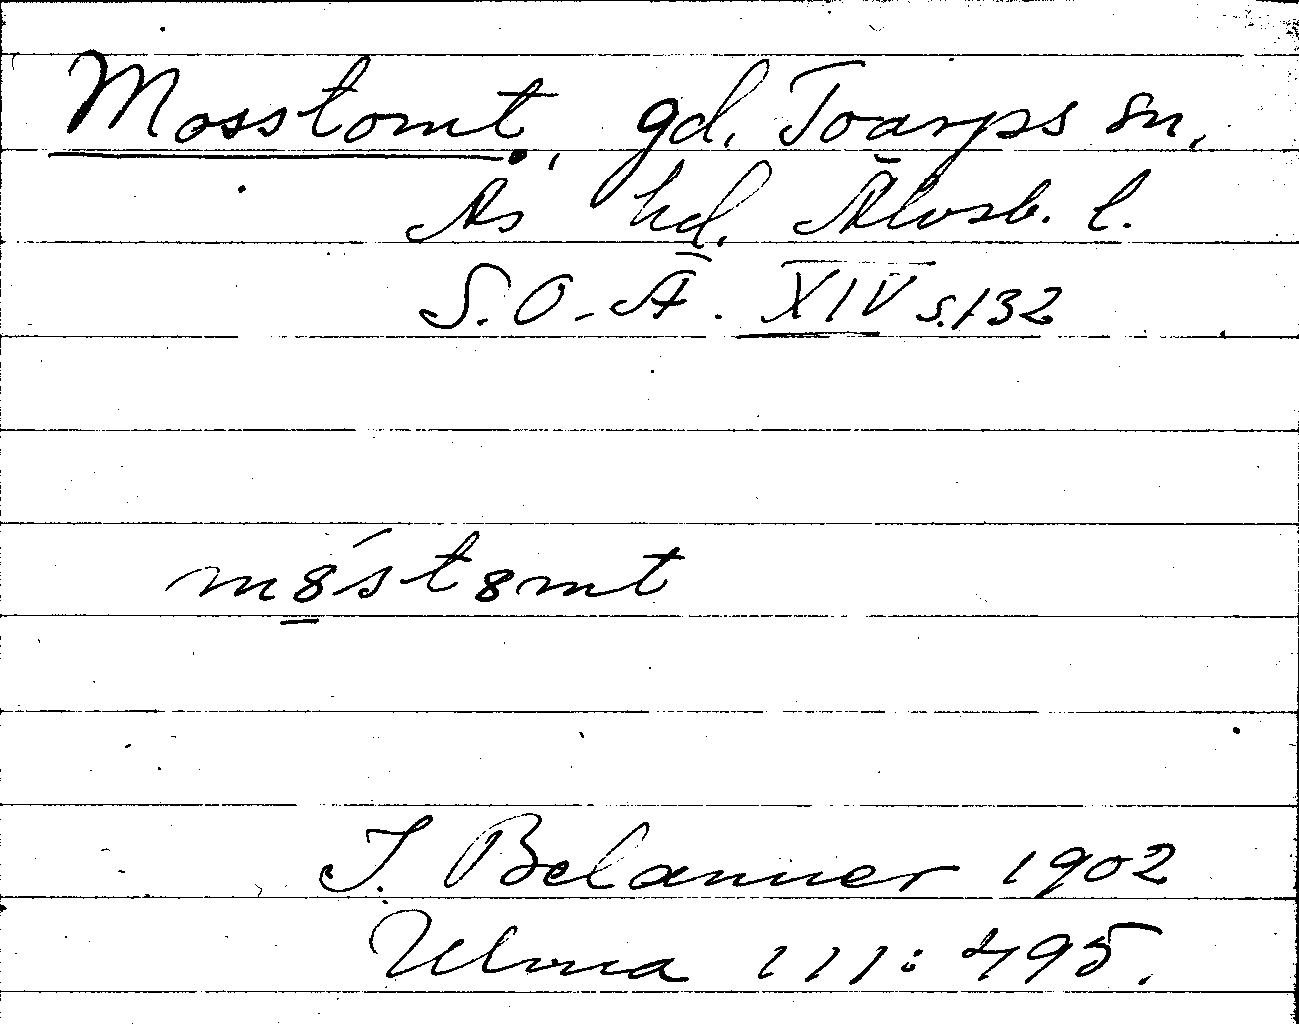 Mosstomt, gd. Toarps sn,
Ås hd. Älvsb. l.
S.O.Ä. XIV s.132
m8́st8mt
J. Belanner 1902
Ulma 111:495.